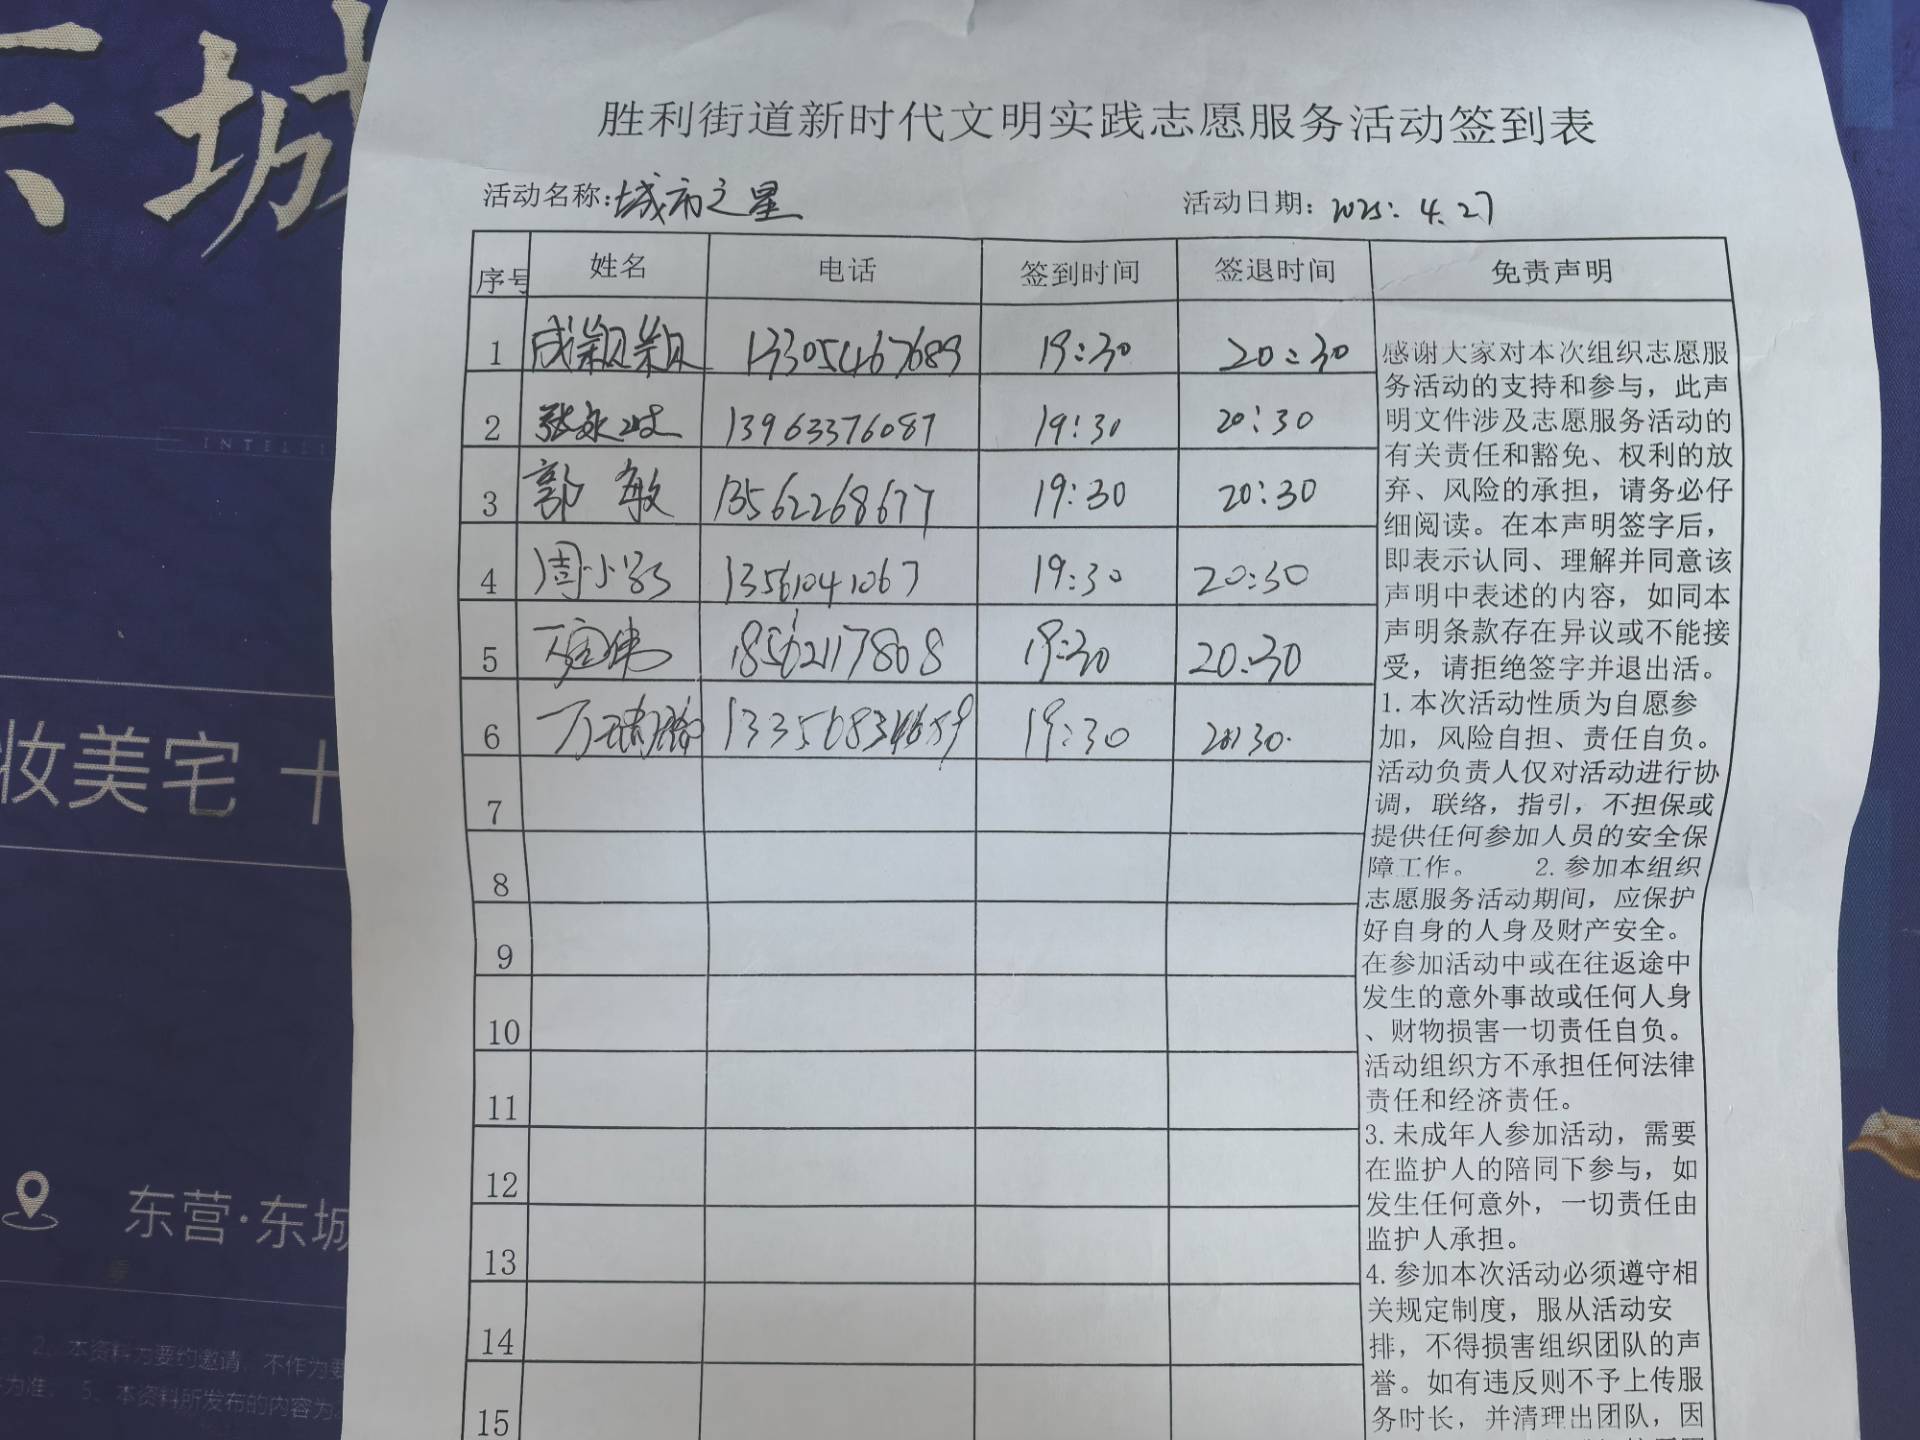 东城
INTELLI
收美宅 十
东营·东城
2、本资料为要约邀请,不作为要
为准。 5、本资料所发布的内容为
胜利街道新时代文明实践志愿服务活动签到表
活动名称:城市之星 活动日期: 2025. 4.27
序号 姓名 电话 签到时间 签退时间 免责声明
1 成颖颖 13305467689 19:30 20:30
2 张永岐 13963376087 19:30 20:30
3 郭敏 13562268677 19:30 20:30
4 周小 13561041067 19:30 20:30
5 伟 18562117808 19:30 20:30
6 万 19:30 20:30
7
8
9
10
11
12
13
14
15
感谢大家对本次组织志愿服
务活动的支持和参与，此声
明文件涉及志愿服务活动的
有关责任和豁免、权利的放
弃、风险的承担，请务必仔
细阅读。在本声明签字后，
即表示认同、理解并同意该
声明中表述的内容，如同本
声明条款存在异议或不能接
受，请拒绝签字并退出活。
1.本次活动性质为自愿参
加，风险自担、责任自负。
活动负责人仅对活动进行协
调，联络，指引，不担保或
提供任何参加人员的安全保
障工作。 2.参加本组织
志愿服务活动期间，应保护
好自身的人身及财产安全。
在参加活动中或在往返途中
发生的意外事故或任何人身
、财物损害一切责任自负。
活动组织方不承担任何法律
责任和经济责任。
3.未成年人参加活动，需要
在监护人的陪同下参与，如
发生任何意外，一切责任由
监护人承担。
4.参加本次活动必须遵守相
关规定制度，服从活动安
排，不得损害组织团队的声
誉。如有违反则不予上传服
务时长，并清理出团队，因